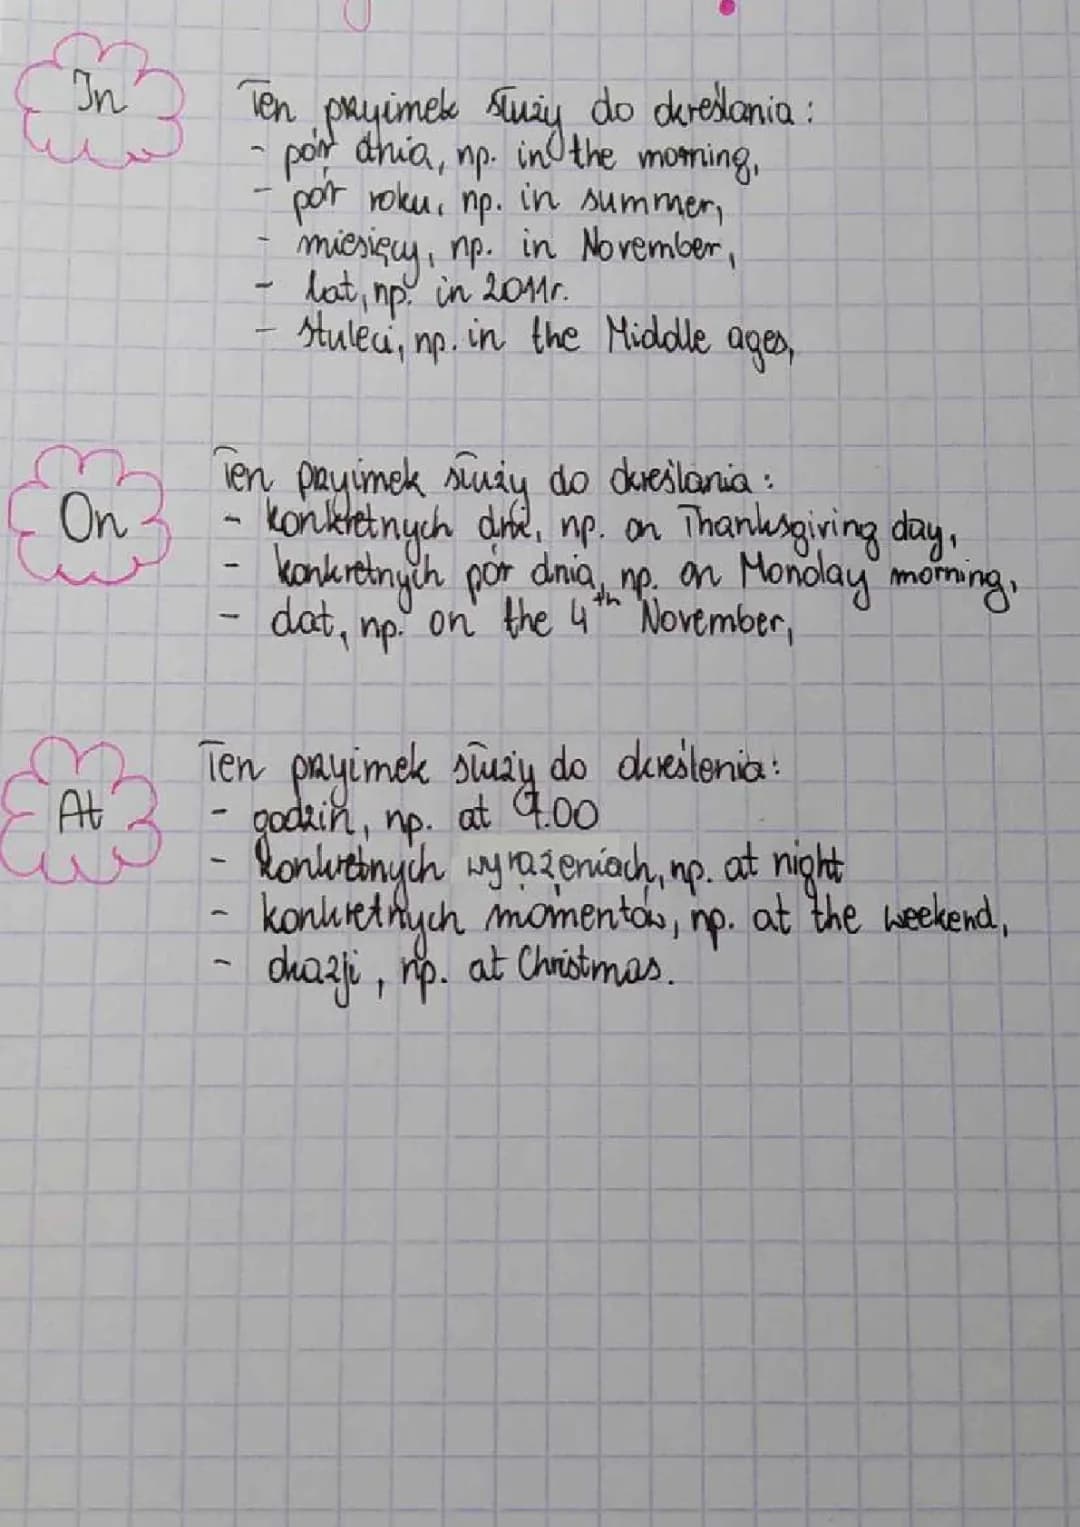 In
Ten przyimek służy do określania:
- pór dnia, np. in the morning,
- pór roku, np. in summer,
- miesięcy, np. in November,
- lat, np. in 2011r.
- stuleci, np. in the Middle ages,
On
Ten przyimek służy do określania:
- konkretnych dni, np. on Thanksgiving day,
- konkretnych pór dnia, np. on Monday morning,
- dat, np. on the 4th November,
At
Ten przyimek służy do określenia:
- godzin, np. at 9.00
- konkretnych wyrażeniach, np. at night
- konkretnych momentów, np. at the weekend,
- okazji, np. at Christmas.